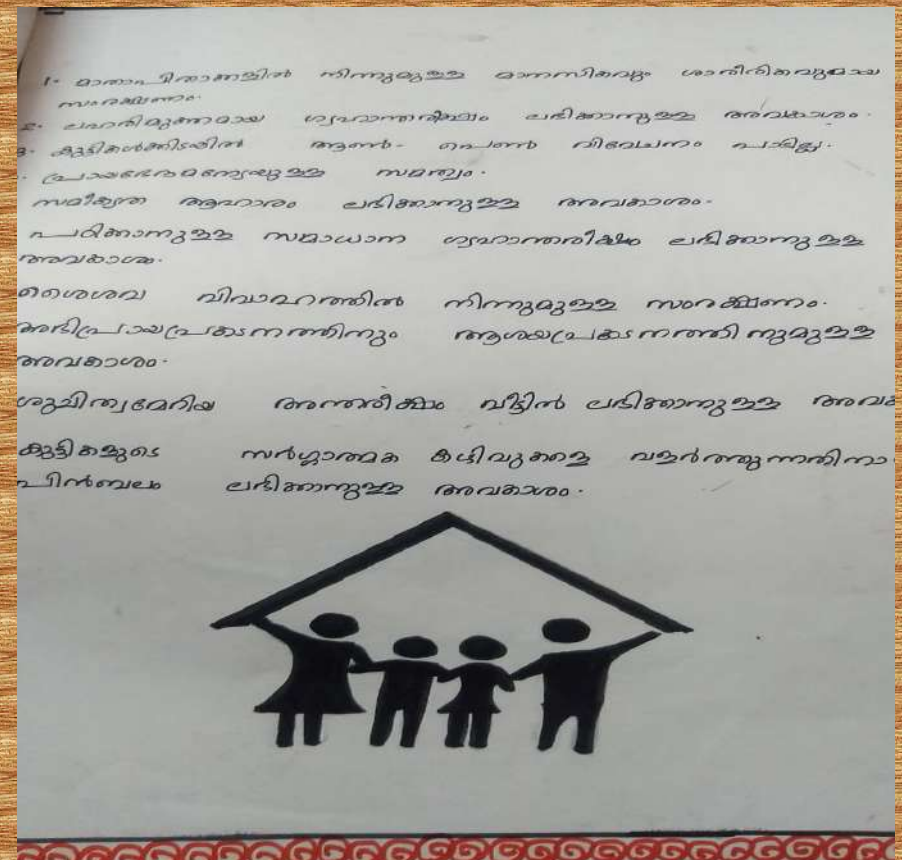 1. മാതാപിതാക്കളിൽ നിന്നുമുള്ള മാനസികവും ശാരീരികവുമായ
സംരക്ഷണം.
2. ലഹരിമുക്തമായ ഗൃഹാന്തരീക്ഷം ലഭിക്കാനുള്ള അവകാശം.
3. കുട്ടികൾക്കിടയിൽ ആൺ- പെൺ വിവേചനം പാടില്ല.
പ്രായഭേദമന്യേയുള്ള സമത്വം.
സമീകൃത ആഹാരം ലഭിക്കാനുള്ള അവകാശം.
പഠിക്കാനുള്ള സമാധാന ഗൃഹാന്തരീക്ഷം ലഭിക്കാനുള്ള
അവകാശം.
ശൈശവ വിവാഹത്തിൽ നിന്നുമുള്ള സംരക്ഷണം.
അഭിപ്രായപ്രകടനത്തിനും ആശയപ്രകടനത്തിനുമുള്ള
അവകാശം.
ശുചിത്വമേറിയ അന്തരീക്ഷം വീട്ടിൽ ലഭിക്കാനുള്ള
കുട്ടികളുടെ സർഗ്ഗാത്മക കഴിവുകളെ വളർത്തുന്നതിനാ
പിൻബലം ലഭിക്കാനുള്ള അവകാശം.